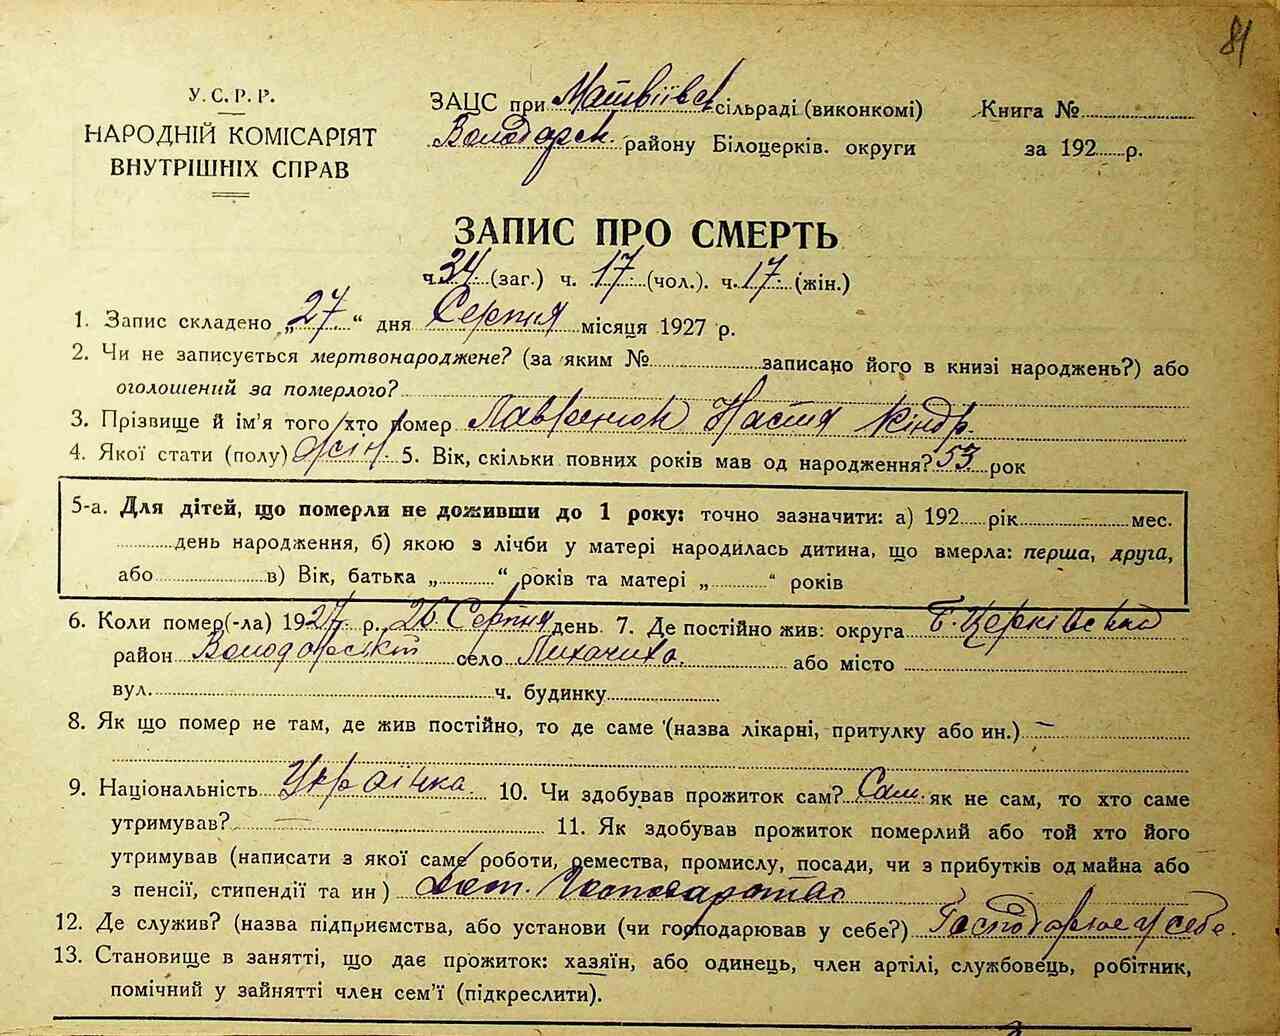 81
У.С.Р.Р.
НАРОДНІЙ КОМІСАРІЯТ
ВНУТРІШНІХ СПРАВ
ЗАЦС при Матвіївс. сільраді (виконкомі)
Володарск. району Білоцерків. округи
Книга №
за 192 р.
ЗАПИС ПРО СМЕРТЬ
ч. 34 (заг.) ч. 17 (чол.). ч. 17 (жін.)
1. Запис складено „27“ дня Серпня місяця 1927 р.
2. Чи не записується мертвонароджене? (за яким № записано його в книзі народжень?) або
оголошений за померлого?
3. Прізвище й ім'я того хто помер Лавренюк Настя Кіндр.
4. Якої стати (полу) жін. 5. Вік, скільки повних років мав од народження? 53 рок
5-а. Для дітей, що померли не доживши до 1 року: точно зазначити: а) 192 рік мес.
день народження, б) якою з лічби у матері народилась дитина, що вмерла: перша, друга,
або в) Вік, батька „ “ років та матері „ “ років
6. Коли помер(-ла) 1927 р. 26 Серпня день. 7. Де постійно жив: округа Б. Церківська
район Володарский село Лихачиха. або місто
вул. ч. будинку
8. Як що помер не там, де жив постійно, то де саме (назва лікарні, притулку або ин.) —
9. Національність Українка. 10. Чи здобував прожиток сам? Сам. як не сам, то хто саме
утримував? — 11. Як здобував прожиток померлий або той хто його
утримував (написати з якої саме роботи, ремества, промислу, посади, чи з прибутків од майна або
з пенсії, стипендії та ин) господарство
12. Де служив? (назва підприємства, або установи (чи господарював у себе?) Господарює у себе.
13. Становище в занятті, що дає прожиток: хазяїн, або одинець, член артілі, службовець, робітник,
помічний у зайнятті член сем'ї (підкреслити).